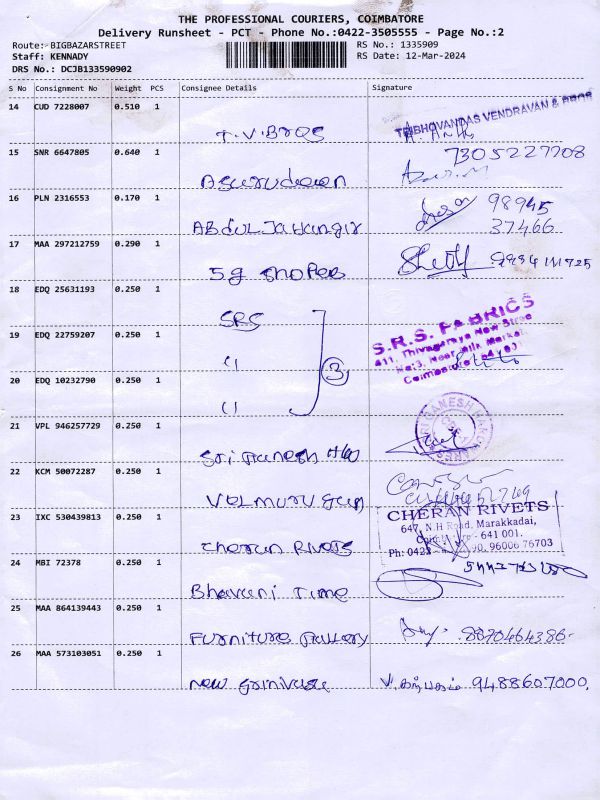 THE PROFESSIONAL COURIERS, COIMBATORE
Delivery Runsheet - PCT - Phone No.:0422-3505555 - Page No.:2
Route: BIGBAZARSTREET
Staff: KENNADY
DRS No.: DCJB133590902
RS No.: 1335909
RS Date: 12-Mar-2024
S No Consignment No Weight PCS Consignee Details Signature
14 CUD 7228007 0.510 1
T.V.Bros
TRIBHOVANDAS VENDRAVAN & BROS
15 SNR 6647805 0.640 1
7305227708
16 PLN 2316553 0.170 1
Abdul Jahangir
98945
37466
17 MAA 297212759 0.290 1
5g Shopee
Shetty
18 EDQ 25631193 0.250 1
SRS
S.R.S. FABRICS
411, Thiyagaraya New Street
No:3, Near Milk Market
Coimbatore
19 EDQ 22759207 0.250 1
"
3
20 EDQ 10232790 0.250 1
"
21 VPL 946257729 0.250 1
Sri Ganesh
SRI GANESH
22 KCM 50072287 0.250 1
Velmurugan
23 IXC 530439813 0.250 1
Cheran Rivets
CHERAN RIVETS
647, N.H Road, Marakkadai,
641 001.
Ph: 0422 96006 76703
24 MBI 72378 0.250 1
Bhavani Time
25 MAA 864139443 0.250 1
Furniture Gallery
8870464386
26 MAA 573103051 0.250 1
New Srinivasa
9488607000